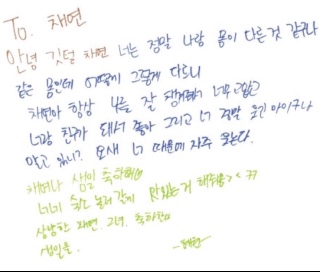 To. 채연
안녕 깃털 채연 너는 정말 나랑 몸이 다른 것 같구나
같은 몸인데 어떻게 그렇게 다르니
채연아 항상 나를 잘 챙겨줘서 너무 고맙고
너랑 친구 돼서 좋아 그리고 너
알고 있니? 요새 너 때문에 자주 웃는다.
채연아 생일 축하해
너네 숙소 놀러갈게 맛있는 거 해줘 >< ㅋㅋ
상냥한 채연. 그녀. 축하한다
생일을.